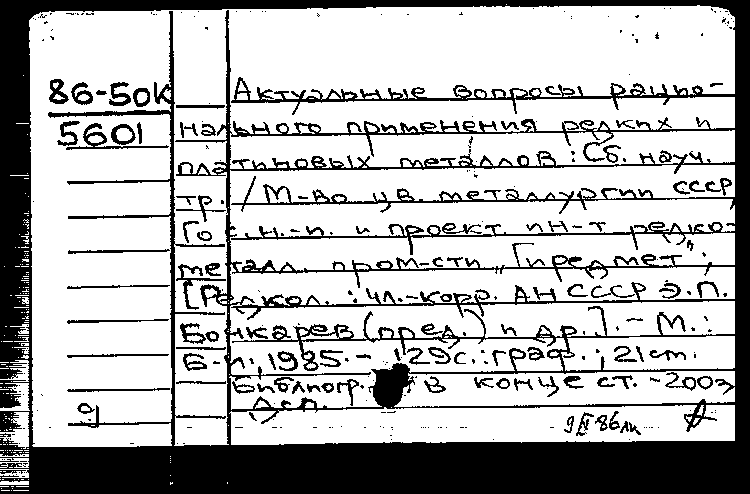 86-50К
5601
Актуальные вопросы рацио-
нального применения редких и
платиновых металлов : Сб. науч.
тр. / М-во цв. металлургии СССР,
Гос. н.-и. и проект. ин-т редко-
металл. пром-сти „Гиредмет";
[Редкол. : чл.-корр. АН СССР Э.П.
Бочкарев (пред.) и др.]. - М. :
Б. и., 1985. - 129 с. : граф. ; 21 см.
Библиогр. в конце ст. - 200э
Дсп.